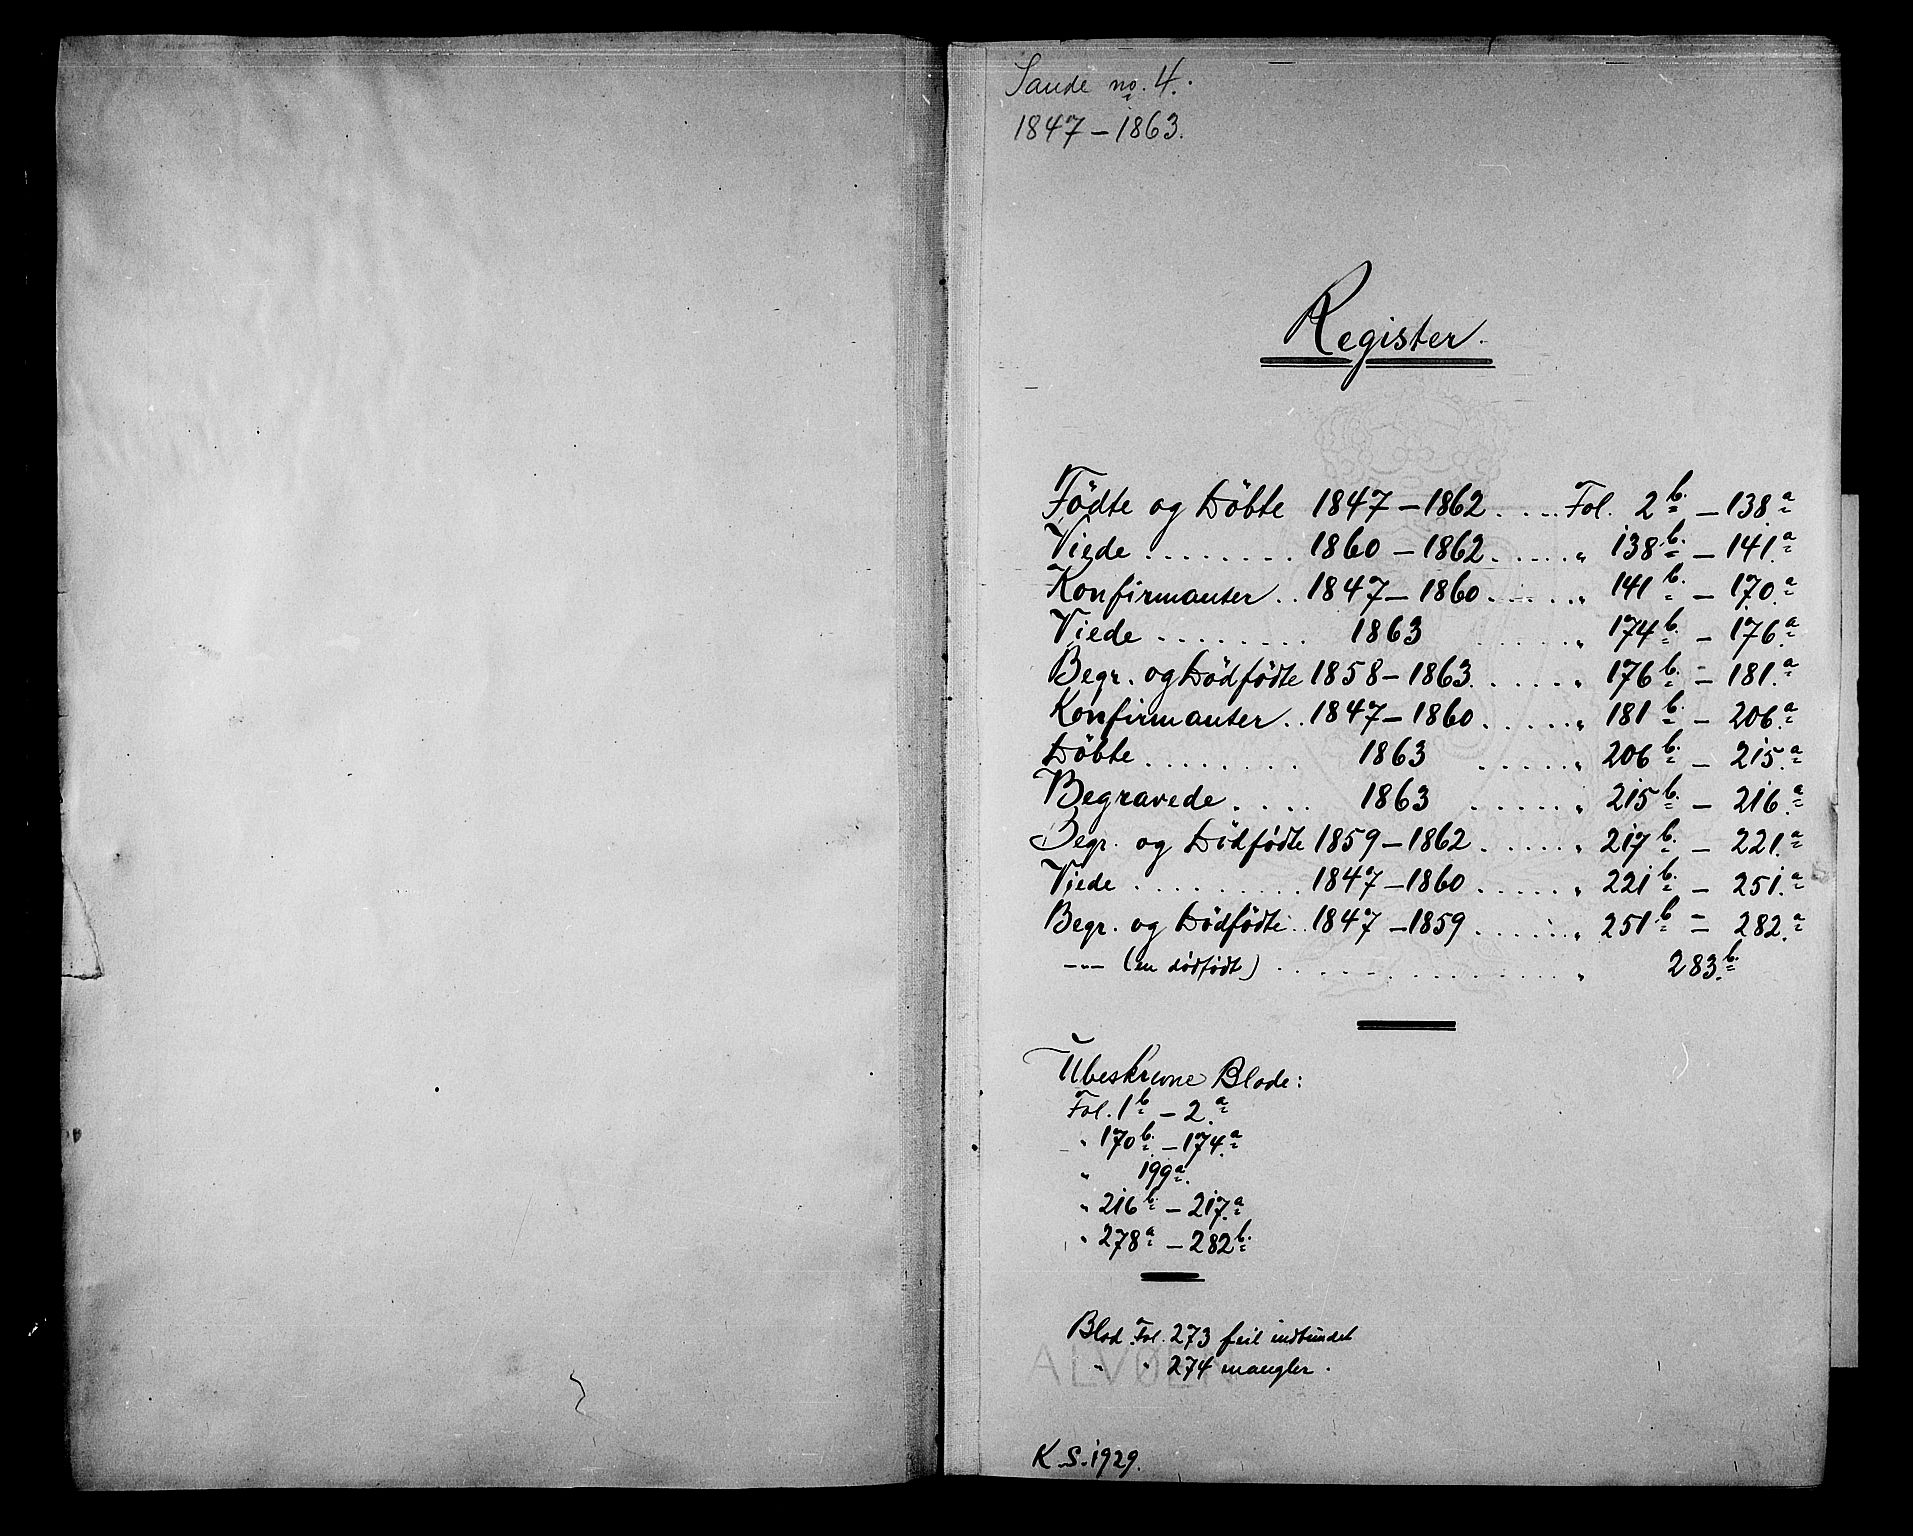 Sande no. 4.
1847 – 1863.
Register.
Födte og Döbte 1847 – 1862. . . . Fol. 2 b. – 138 a
Viede . . . . . . . . 1860 – 1862. . . . . „ 138 b. – 141. a
Konfirmanter . . 1847 – 1860 . . . . . „ 141 b. – 170. a
Viede . . . . . . . . 1863 . . . . . . „ 174 b. – 176. a
Begr. og Dödfödte 1858 – 1863. . . . . . „ 176 b. – 181. a
Konfirmanter . . 1847 – 1860 . . . . . „ 181 b. – 206. a
Döbte . . . . . . . . 1863 . . . . . . „ 206 b. – 215. a
Begravede . . . . 1863 . . . . . . „ 215 b. – 216. a
Begr. og Dödfödte 1859 – 1862 . . . . . „ 217 b. – 221. a
Viede . . . . . . . . . 1847 – 1860 . . . . . „ 221 b. – 251. a
Begr. og Dödfödte . . 1847 – 1859 . . . . . . „ 251 b – 282. a
--- (en dödfödt) . . . . . . . . . . . . . . . „ 283. b.
Ubeskrevne Blade:
Fol. 1 b – 2. a
„ 170 b. – 174. a
„ 199 a.
„ 216 b. – 217. a
„ 278 a – 282 b.
Blad Fol. 273 feil indbundet
„ „ 274 mangler .
ALVØEN
K. S. 1929.